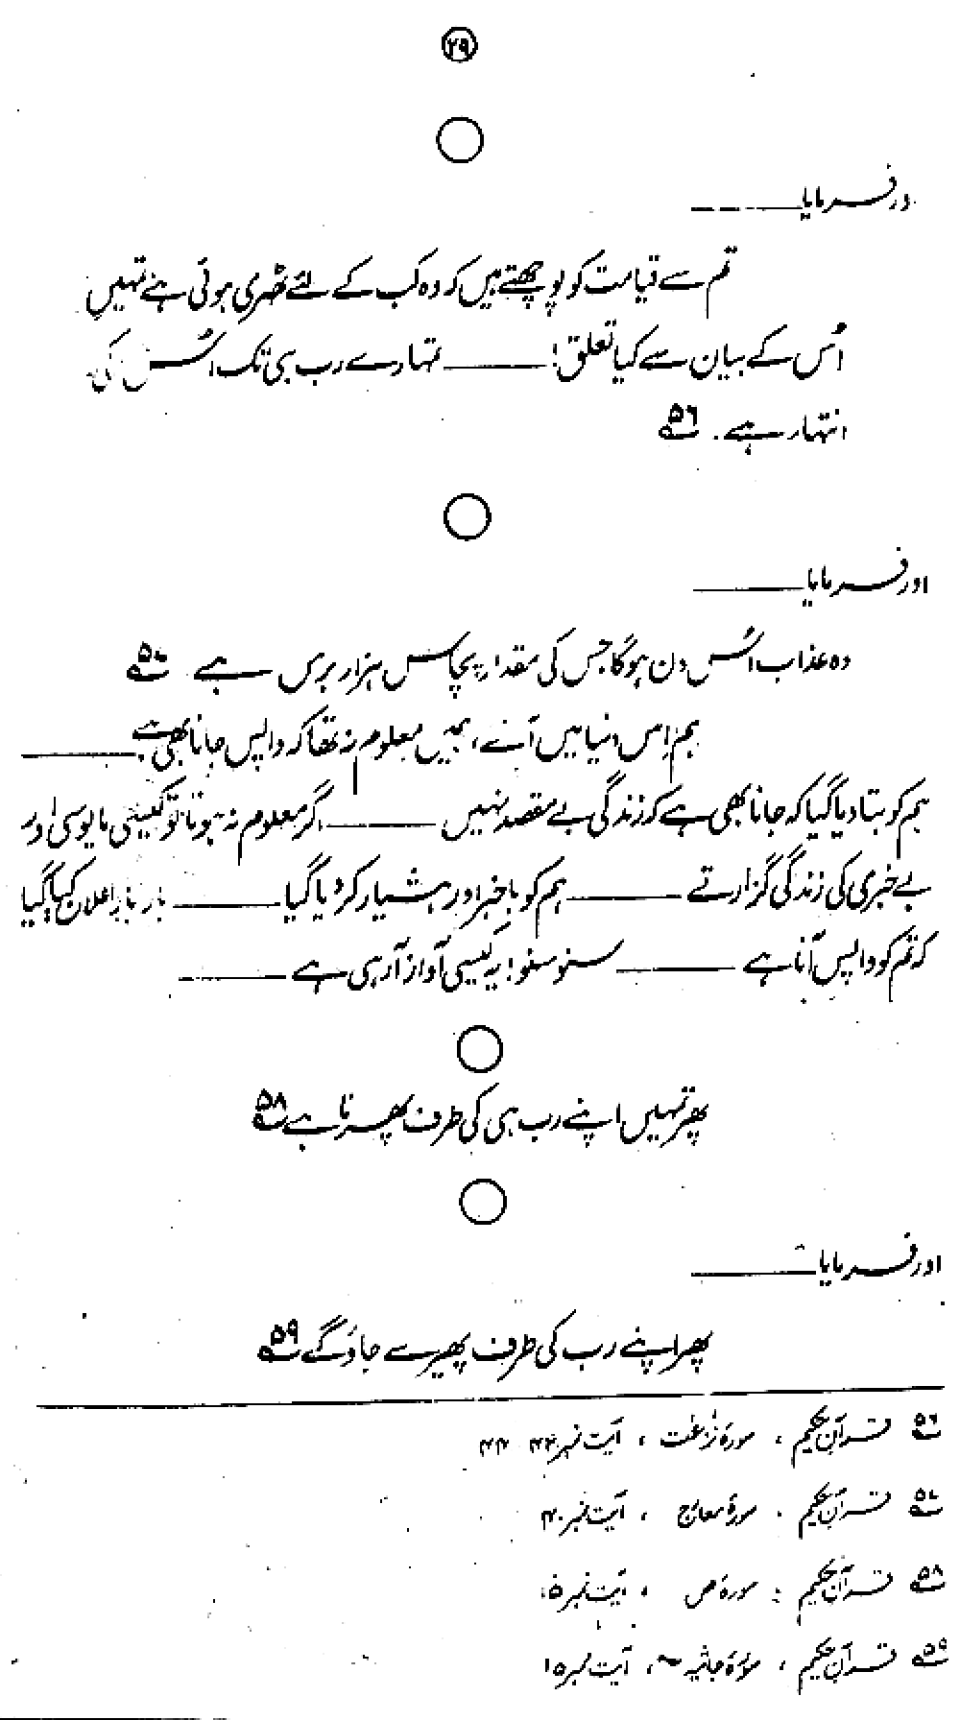 ۲۹
اور فرمایا ــــــ
تم سے قیامت کو پوچھتے ہیں کہ وہ کب کے لئے ٹھہری ہوئی ہے تمہیں
اُس کے بیان سے کیا تعلق! ــــــ تمہارے رب ہی تک اُس کی
انتہا ہے۔ ۵۶
اور فرمایا ــــــ
وہ عذاب اُس دن ہوگا جس کی مقدار پچاس ہزار برس ہے ۵۷
ہم اِس دنیا میں آئے، ہمیں معلوم نہ تھا کہ واپس جانا بھی ہے ــــــ
ہم کو بتا دیا گیا کہ جانا بھی ہے کہ زندگی بے مقصد نہیں ــــــ اگر معلوم نہ ہوتا تو کیسی مایوسی اور
بے خبری کی زندگی گزارتے ــــــ ہم کو باخبر اور ہشیار کر دیا گیا ــــــ بار بار اعلان کیا گیا
کہ تم کو واپس آنا ہے ــــــ سنو سنو! یہ کیسی آواز آ رہی ہے ــــــ
پھر تمہیں اپنے رب ہی کی طرف پھرنا ہے ۵۸
اور فرمایا ــــــ
پھر اپنے رب کی طرف پھیرے جاؤ گے ۵۹
۵۶ قرآن حکیم ، سورۂ نٰزعٰت ، آیت نمبر ۴۲ ۔ ۴۴
۵۷ قرآن حکیم ، سورۂ معارج ، آیت نمبر ۴
۵۸ قرآن حکیم ، سورۂ ص ، آیت نمبر
۵۹ قرآن حکیم ، سورۂ جاثیہ ، آیت نمبر ۱۵